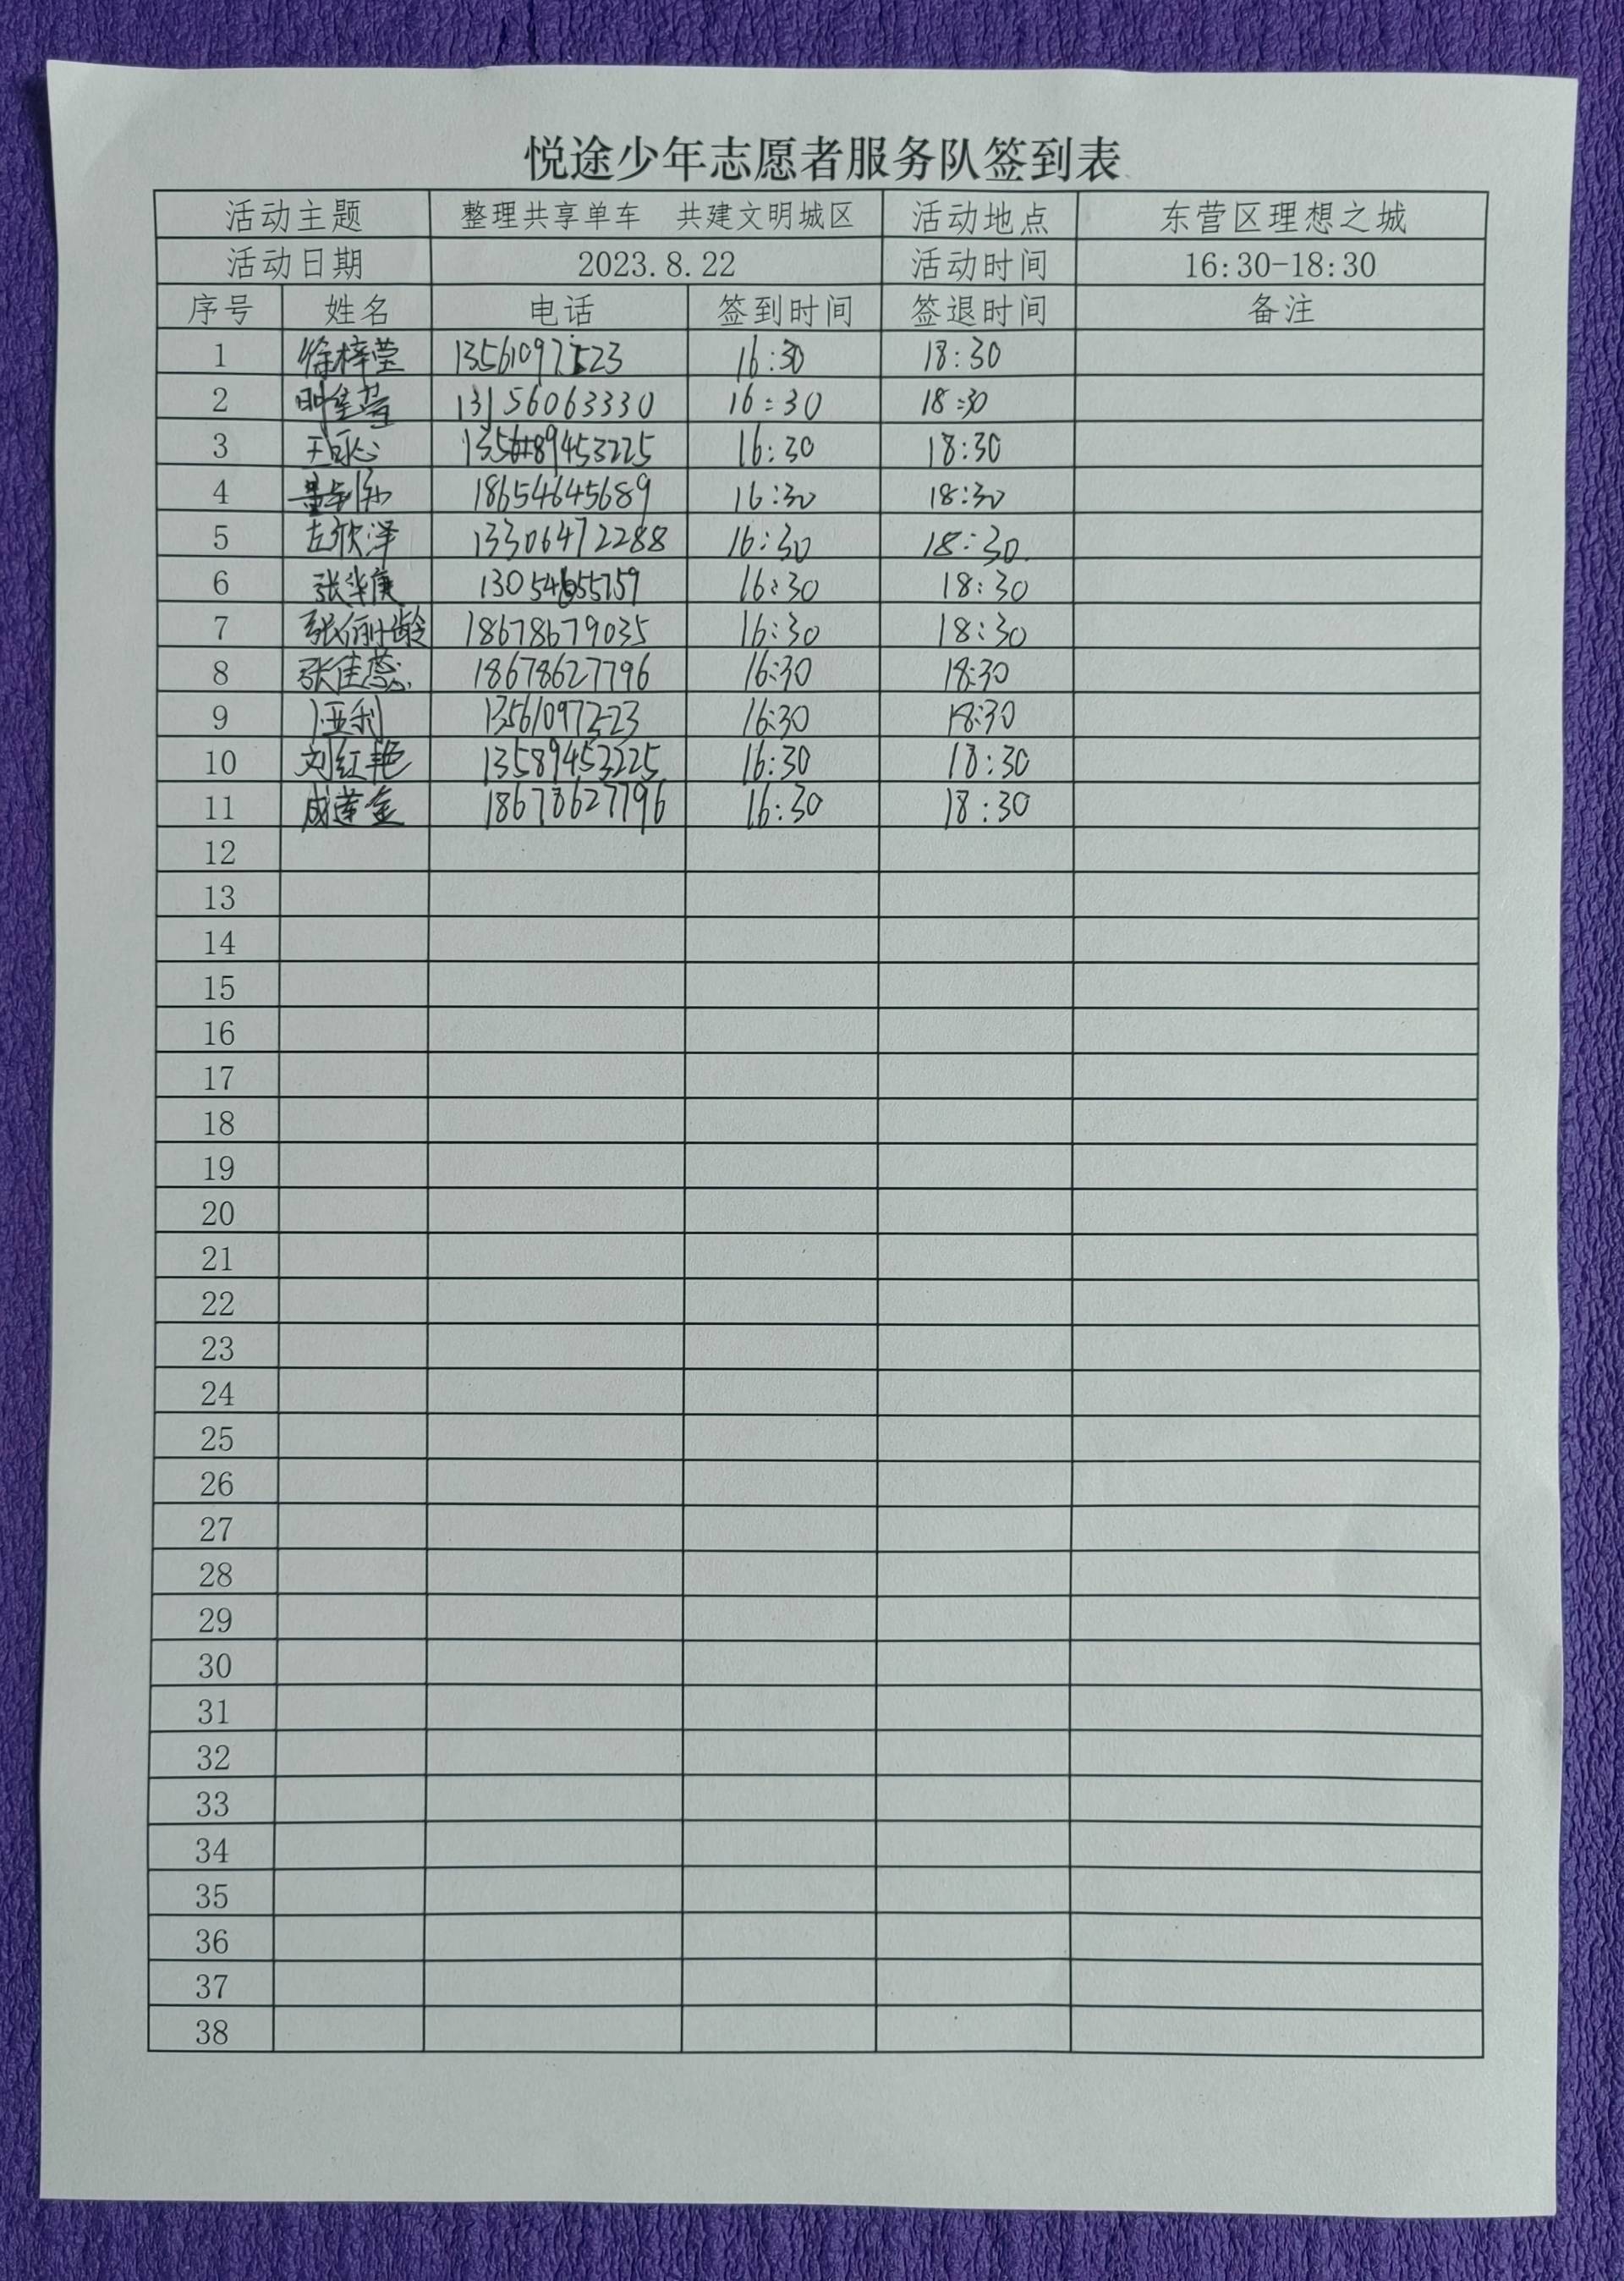 悦途少年志愿者服务队签到表
活动主题 整理共享单车 共建文明城区 活动地点 东营区理想之城
活动日期 2023.8.22 活动时间 16:30-18:30
序号 姓名 电话 签到时间 签退时间 备注
1 徐梓莹 16:30 18:30
2 13156063330 16:30 18:30
3 16:30 18:30
4 18654645689 16:30 18:30
5 左欣泽 13306472288 16:30 18:30
6 张华庚 13054655759 16:30 18:30
7 18678679035 16:30 18:30
8 张佳蕊 18678627796 16:30 18:30
9 13561097223 16:30 18:30
10 刘红艳 13589453225 16:30 18:30
11 成莲金 18678627796 16:30 18:30
12
13
14
15
16
17
18
19
20
21
22
23
24
25
26
27
28
29
30
31
32
33
34
35
36
37
38